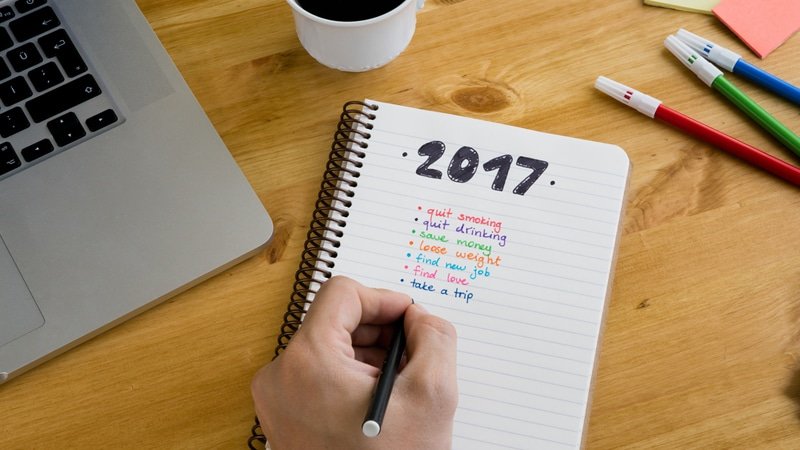 • 2017 •
• quit smoking
• quit drinking
• save money
• loose weight
• find new job
• find love
• take a trip